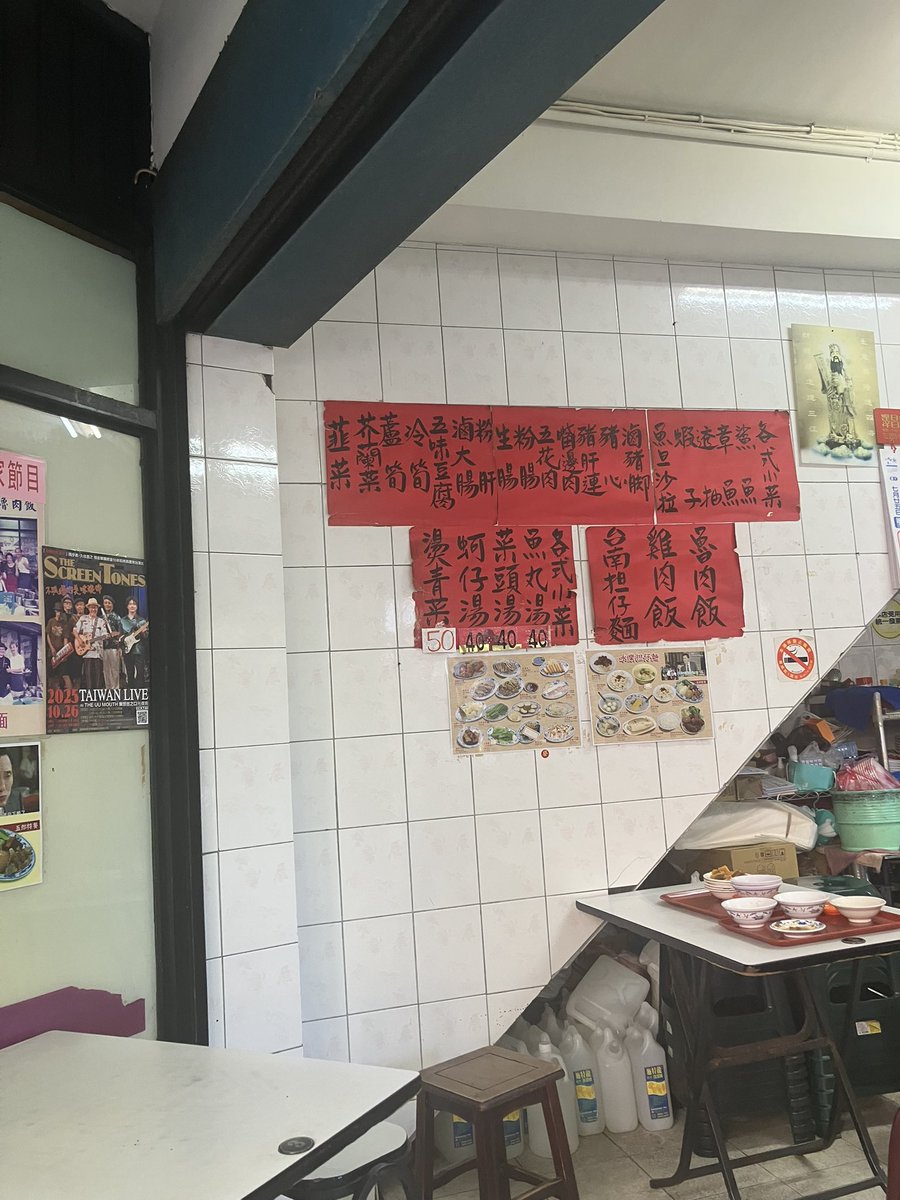 各式小菜
鯊魚
章魚
透抽
蝦子
魚旦沙拉
滷豬腳
豬心
豬肝連
嘴邊肉
五花肉
粉腸
生腸
粉肝
滷大腸
五味豆腐
冷筍
蘆筍
芥蘭菜
韮菜
魯肉飯
雞肉飯
台南担仔麵
各式小菜
魚丸湯
菜頭湯
蚵仔湯
燙青菜
50
40
40
40
家節目
魯肉飯
麵
THE
SCREENTONES
2025
10.26
TAIWAN LIVE
五郎特餐